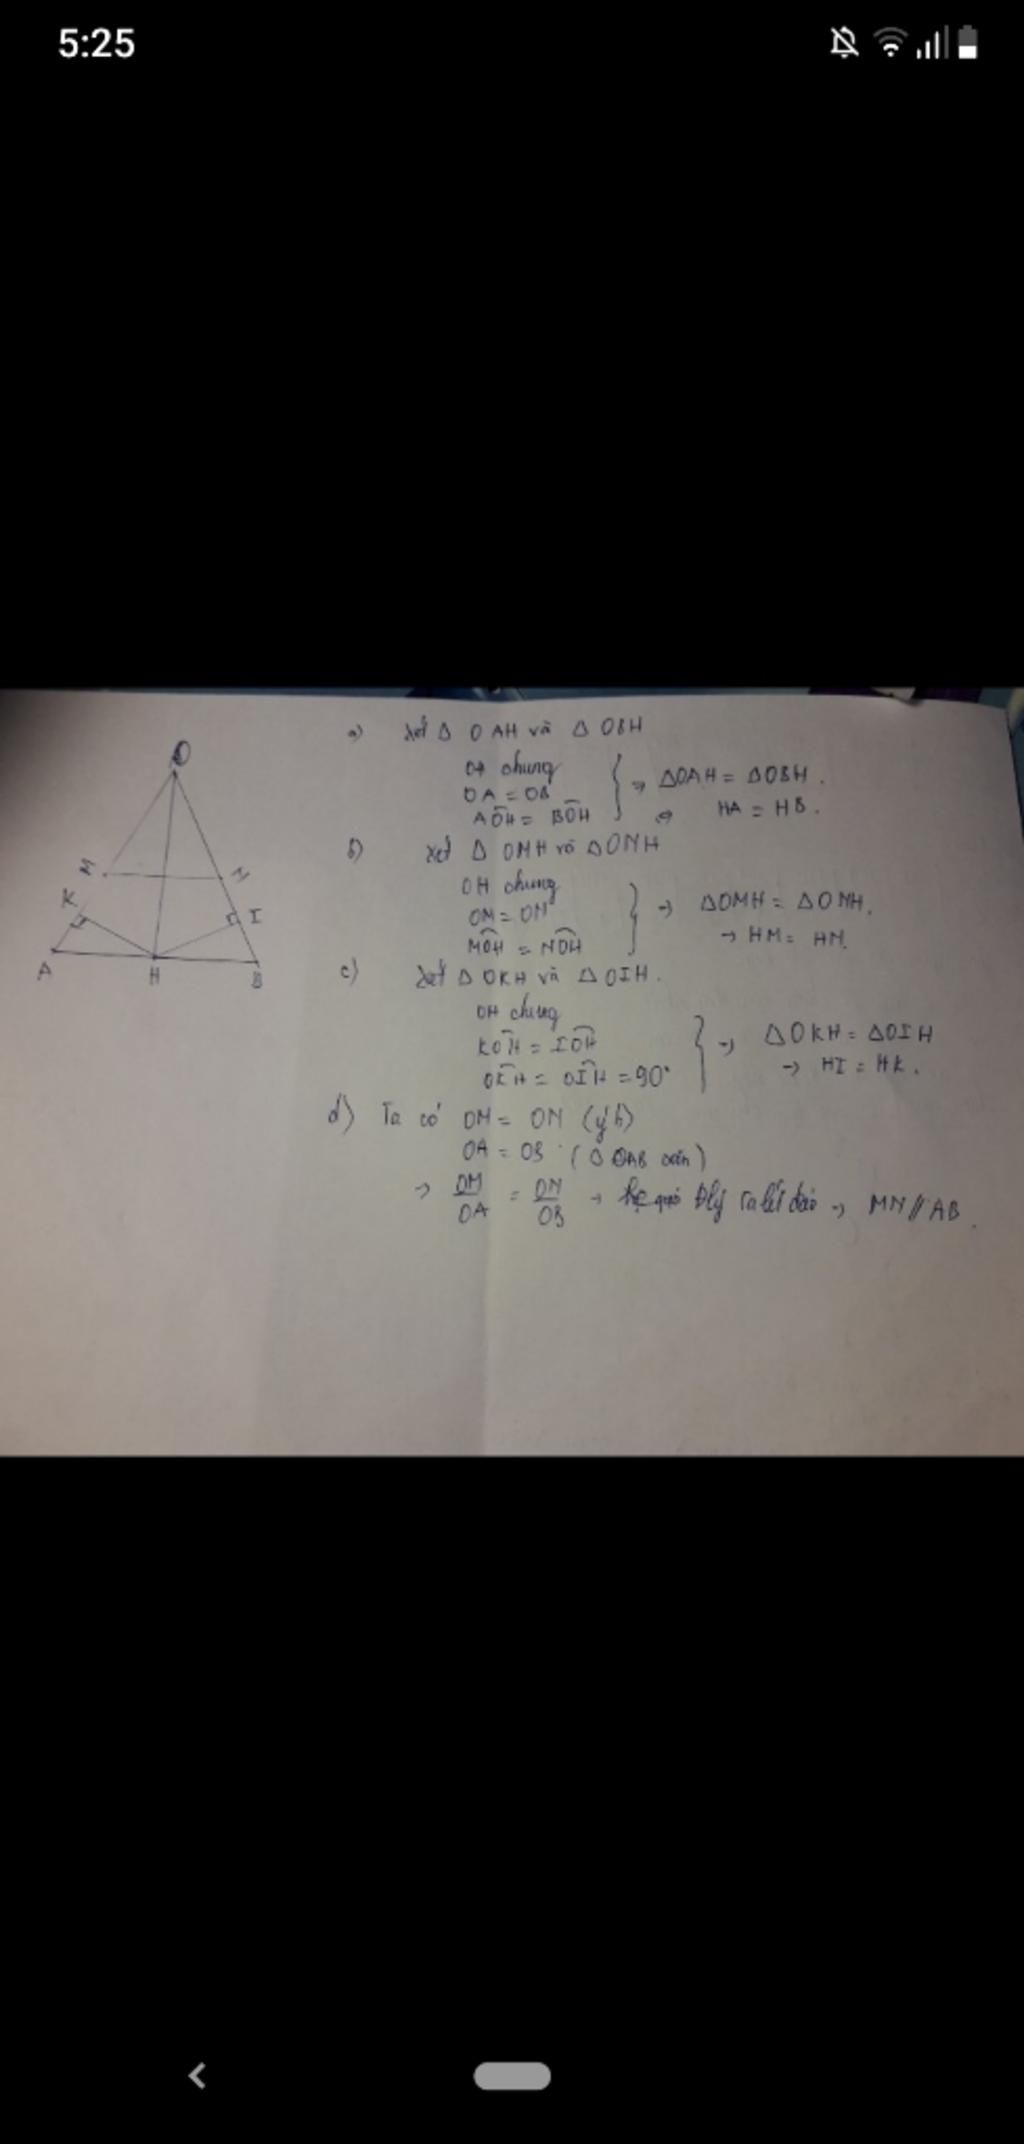 5:25
O
M
N
K
I
A
H
B
a) xét Δ OAH và Δ OBH
OH chung
OA = OB
AÔH = BÔH
} → ΔOAH = ΔOBH.
HA = HB.
b) xét Δ OMH và ΔONH
OH chung
OM = ON
MÔH = NÔH
} → ΔOMH = ΔONH.
→ HM = HN.
c) xét Δ OKH và ΔOIH.
OH chung
KÔH = IÔH
OK̂H = OÎH = 90°
} → ΔOKH = ΔOIH
→ HI = HK.
d) Ta có OM = ON (ý b)
OA = OB (Δ OAB cân)
→ OM/OA = ON/OB → hệ quả Đlý Ta lét đảo → MN // AB.